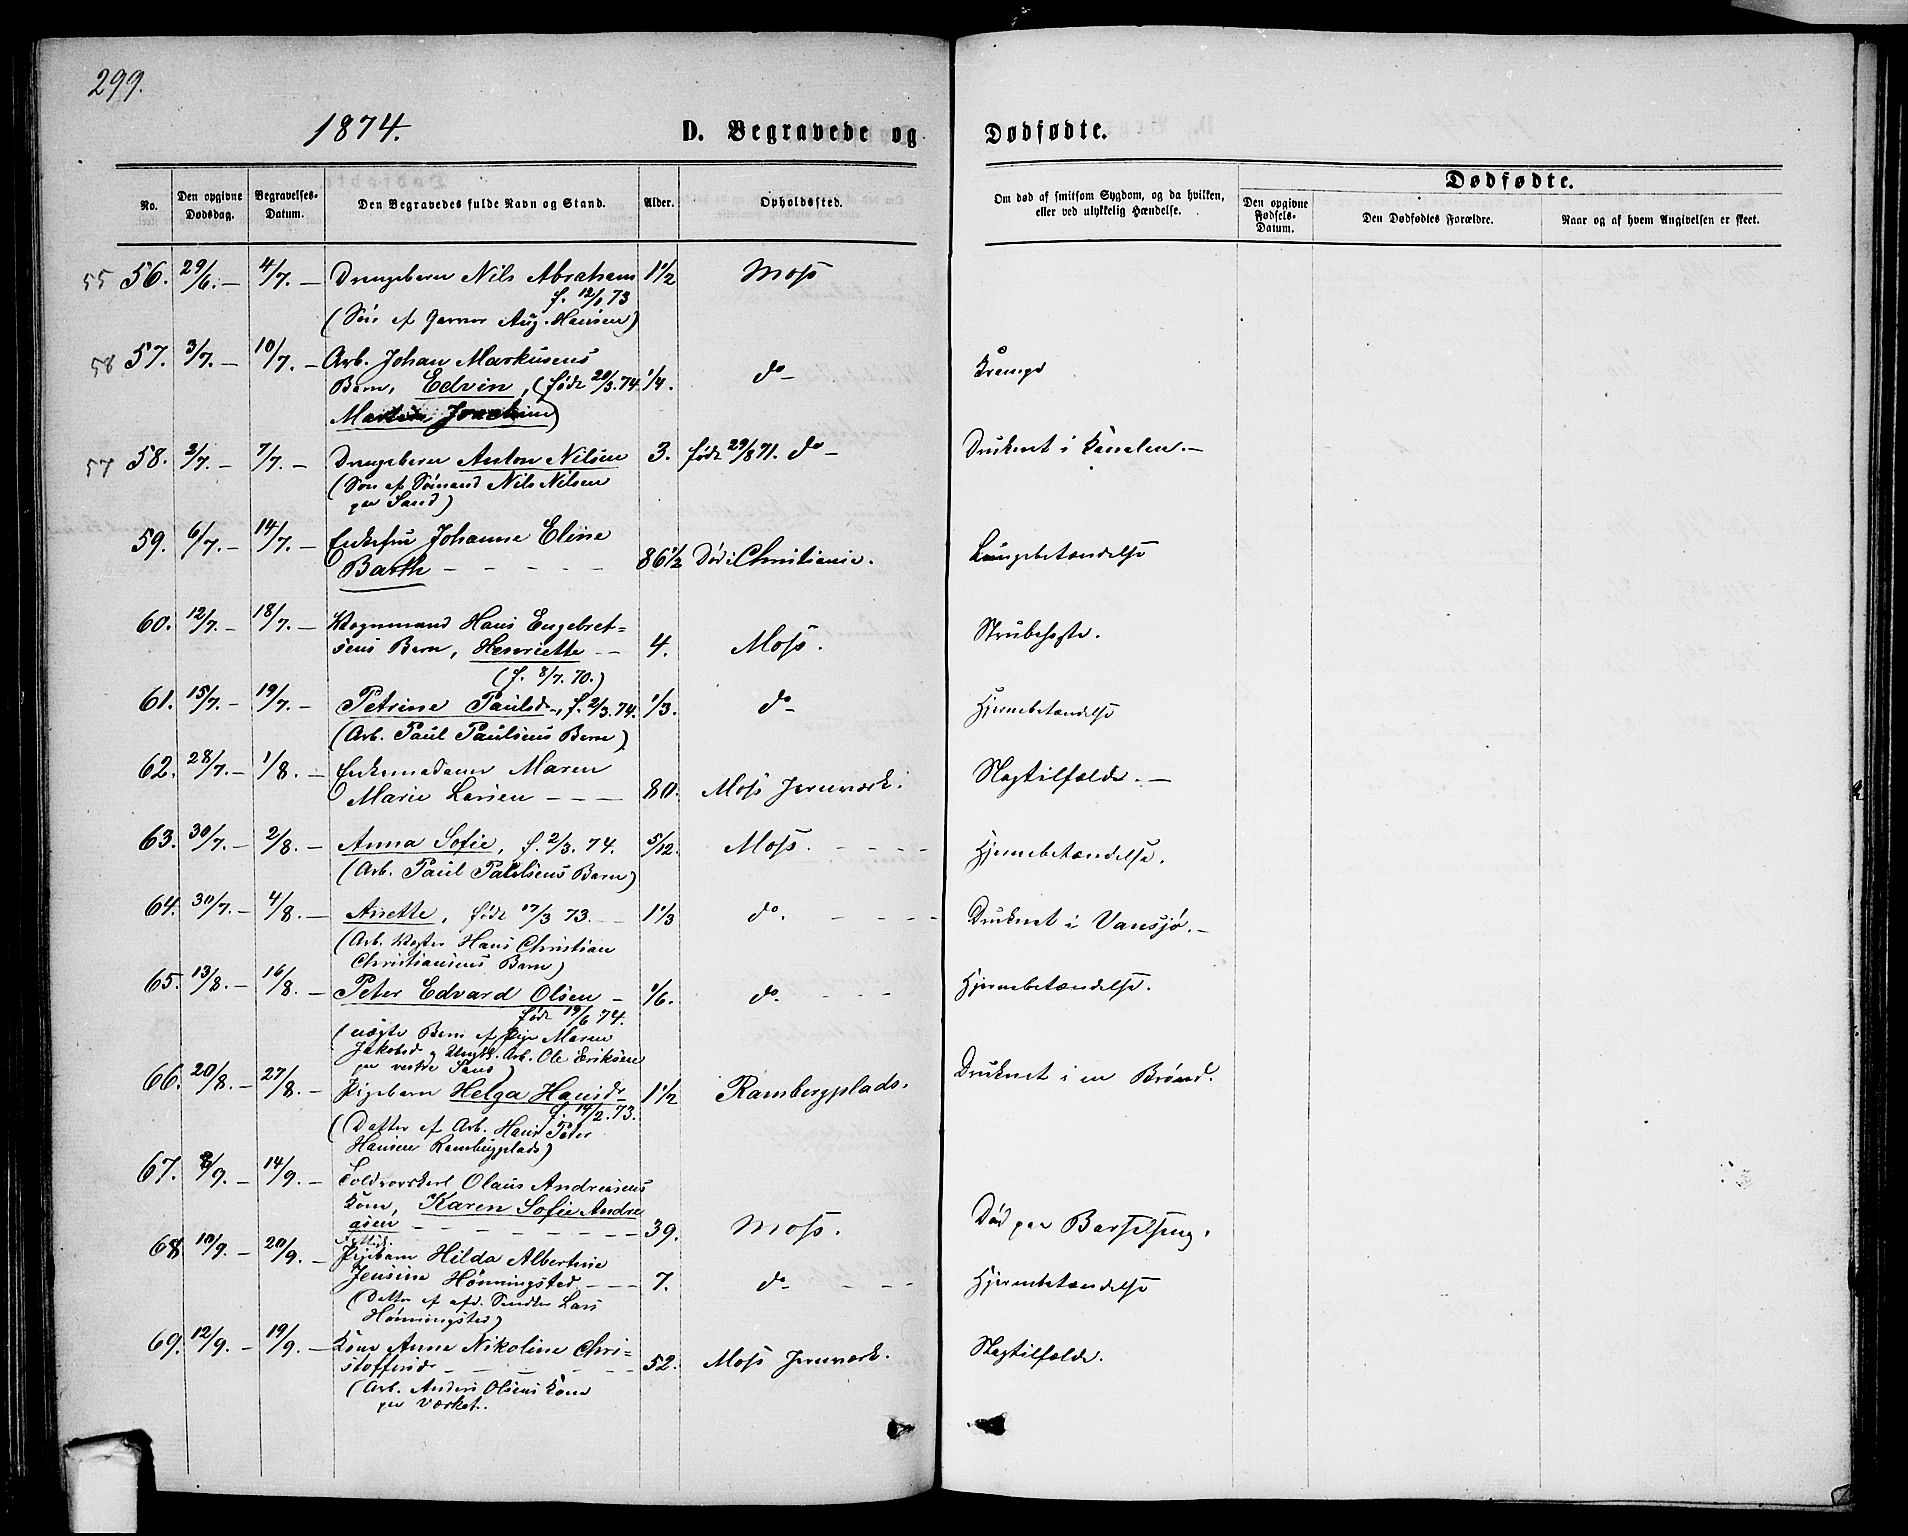 299.
1874.
D. Begravede og Dødfødte.
No.
Den opgivne Dødsdag.
Begravelses-Datum.
Den Begravedes fulde Navn og Stand.
Alder.
Opholdssted.
Om død af smitsom Sygdom, og da hvilken, eller ved ulykkelig Hændelse.
Dødfødte.
Den opgivne Fødsels-Datum.
Den Dødfødtes Forældre.
Naar og af hvem Angivelsen er skeet.
55 56. 29/6. – 4/7. – Drengebarn Nils Abraham 1 1/2 Moss
f. 12/1 73
(Søn af Garver Aug. Hansen)
58 57. 3/7. – 10/7. – Arb. Johan Markusens
Barn, Edvin, (født 20/3. 74. 1/4. do – Krampe
Martin Joachim)
57 58. 2/7. – 7/7. – Drengebarn Anton Nilsen 3. født 29/8 71. do – Druknet i Kanalen. –
(Søn af Sømand Nils Nilsen
paa Sand)
59. 6/7. – 14/7. – Enkefru Johanne Eline
Barth – – – – – 86 1/2 Død i Christiania. Lungebetændelse
60. 12/7. – 18/7. – Vognmand Hans Engebret-
sens Barn, Henriette – – 4. Moss. Strubehoste.
(f. 8/7. 70.)
61. 15/7. – 19/7. – Petrine Paulsd., f. 2/3. 74. 1/3. do – Hjernebetændelse
(Arb. Paul Paulsens Barn)
62. 28/7. – 1/8. – Enkemadame Maren
Marie Larsen – – – 80. Moss Jernværk. Slagtilfælde. –
63. 30/7. – 2/8. – Anna Sofie, f. 2/3. 74. 5/12. Moss. – – – – Hjernebetændelse.
(Arb. Paul Paulsens Barn)
64. 30/7. – 4/8. – Anette, født 17/3 73. – – 1 1/3 do. – – – – Druknet i Vansjø. –
(Arb. Hans Christian
Christiansens Barn)
65. 13/8. – 16/8. – Peter Edvard Olsen – 1/6. do. – – – Hjernebetændelse.
født 19/6 74.
(uægte Barn af Pige Maren
Jakobsd. og Ungk. Arb. Ole Eriksen
paa vestre Sand)
66. 20/8. – 27/8. – Pigebarn Helga Hansd. – 1 1/2 Rambergplads. Druknet i en Brønd.
f. 19/2. 73.
(Datter af Arb. Hans Peter
Hansen Rambergplads)
67. 8/9. – 14/9. – Toldroerskarl Olaus Andreasens
Kone, Karen Sofie Andre
asen – – – – – – – 39. Moss. Død paa Barselseng.
68. 10/9. – 20/9. – Pigebarn Hilda Albertine
Jensine Hønningsted – – – 7. do – – – – Hjernebetændelse
(Datter af afd. Snedker Lars
Hønningsted)
69. 12/9. – 19/9. – Kone Anne Nikoline Chri-
stoffersd. – – – – – 52. Moss Jernværk. Slagtilfælde.
(Arb. Anders Olsens Kone
paa Værket.